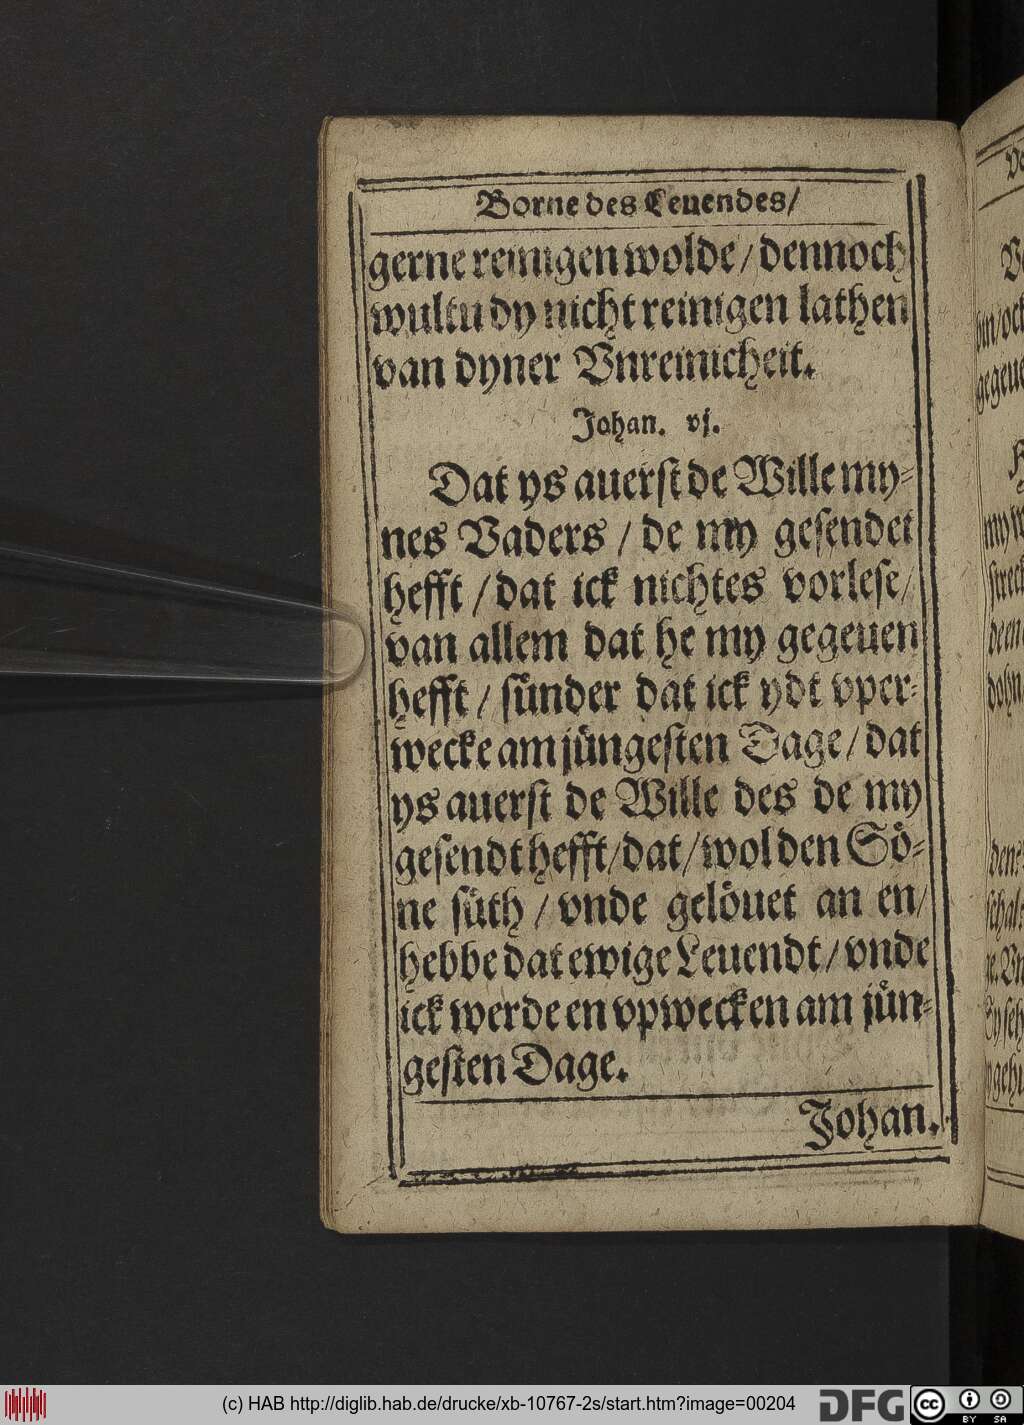 Borne des Leuendes/
gerne reinigen wolde/ dennoch
wultu dy nicht reinigen lathen
van dyner Vnreinicheit.
Johan. vj.
Dat ys auerst de Wille my-
nes Vaders / de my gesendet
hefft / dat ick nichtes vorlese/
van allem dat he my gegeuen
hefft / sünder dat ick ydt vper-
wecke am jüngesten Dage/ dat
ys auerst de Wille des de my
gesendt hefft/dat/wol den Sö-
ne süth / vnde gelöuet an en/
hebbe dat ewige Leuendt/ vnde
ick werde en vpwecken am jün-
gesten Dage.
Johan.
(c) HAB http://diglib.hab.de/drucke/xb-10767-2s/start.htm?image=00204
DFG
cc BY SA